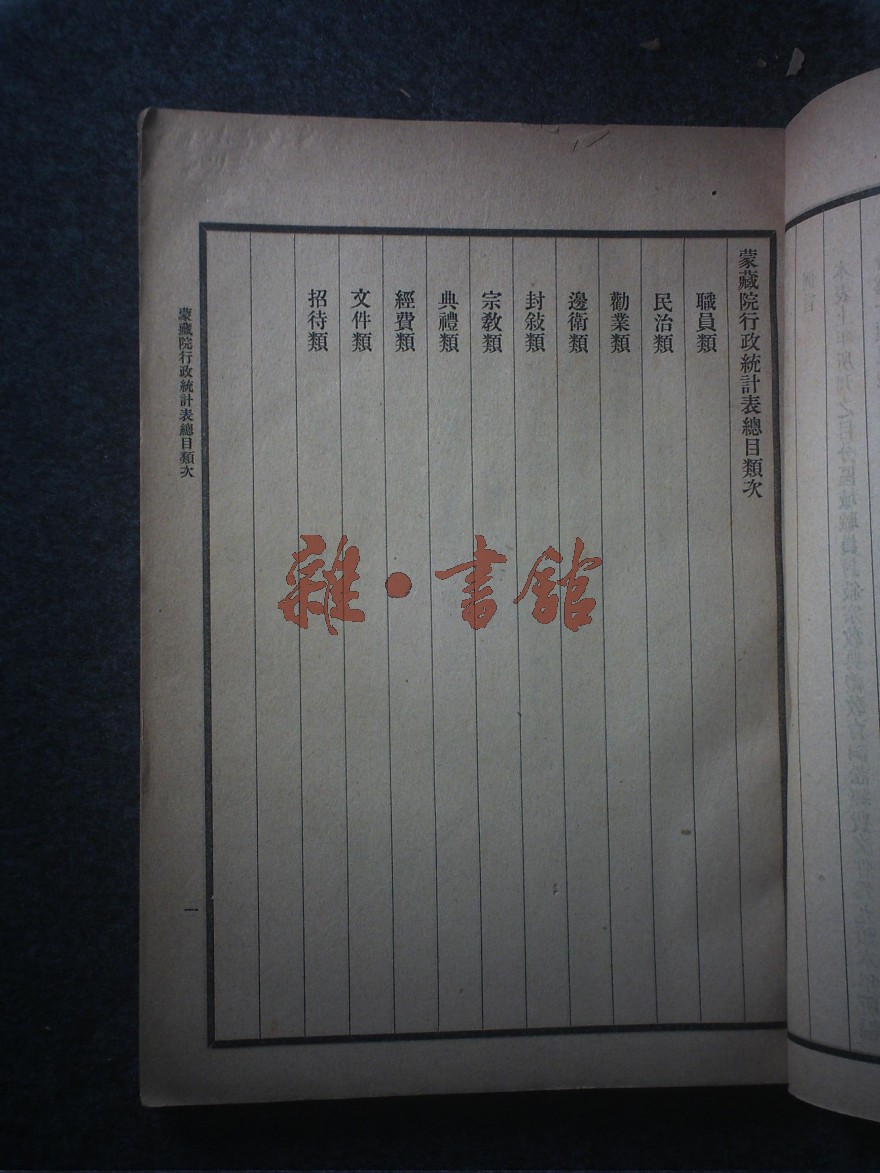 蒙藏院行政統計表總目類次
職員類
民治類
勸業類
邊衛類
封敍類
宗敎類
典禮類
經費類
文件類
招待類
蒙藏院行政統計表總目類次
一
雜·書館